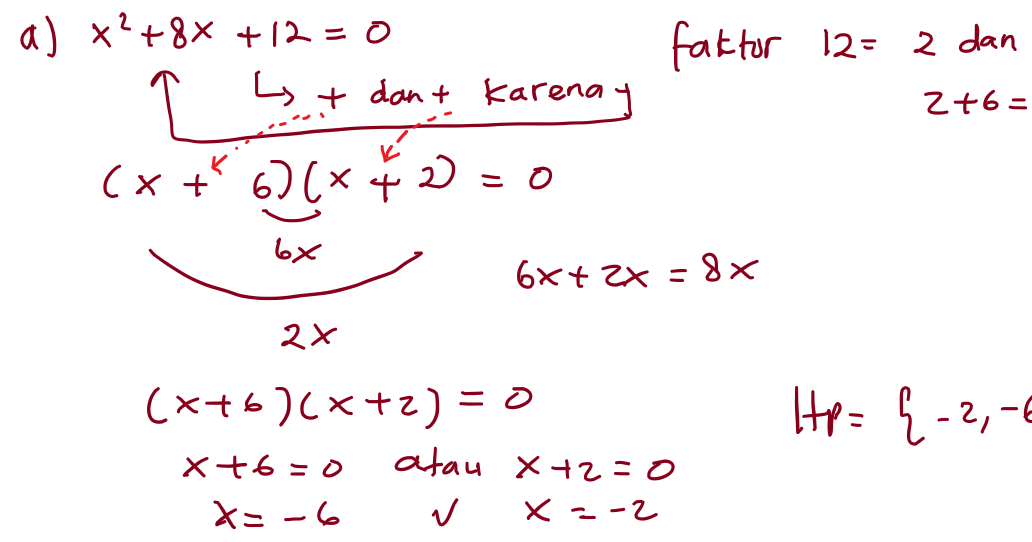 a) x² + 8x + 12 = 0
faktor 12 = 2 dan
↳ + dan + karena
2 + 6 =
(x + 6)(x + 2) = 0
6x
6x + 2x = 8x
2x
(x + 6)(x + 2) = 0
Hp = { -2, -6
x + 6 = 0 atau x + 2 = 0
x = -6 v x = -2